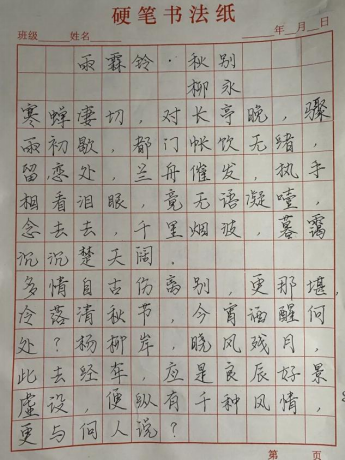 硬笔书法纸
班级 姓名 年 月 日
雨霖铃·秋别
柳永
寒蝉凄切，对长亭晚，骤
雨初歇，都门帐饮无绪，
留恋处，兰舟催发，执手
相看泪眼，竟无语凝噎，
念去去，千里烟波，暮霭
沉沉楚天阔．
多情自古伤离别，更那堪，
冷落清秋节，今宵酒醒何
处？杨柳岸，晓风残月，
此去经年，应是良辰好景
虚设，便纵有千种风情，
更与何人说？
第 页